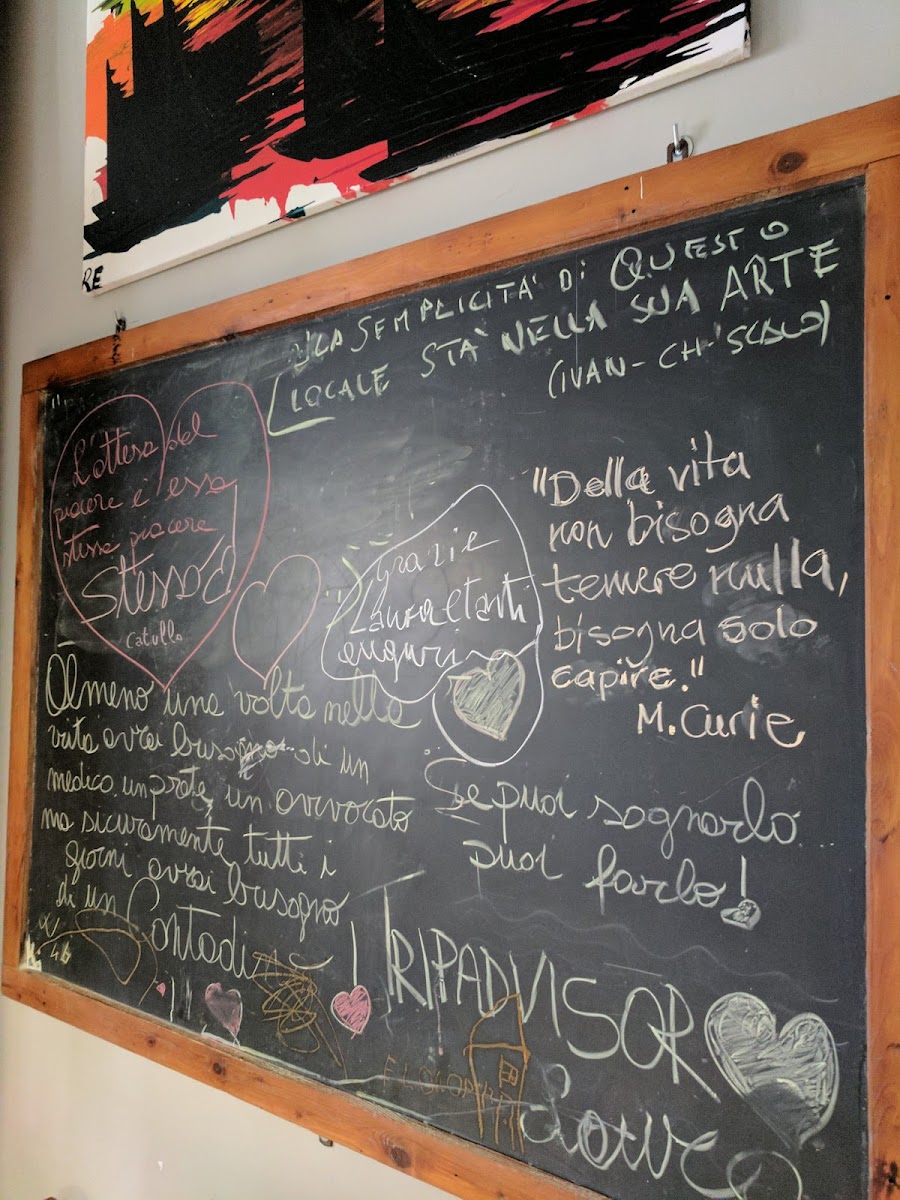 RE
"LA SEMPLICITÀ DI QUESTO
LOCALE STÀ NELLA SUA ARTE
L'attesa del
piacere è essa
stessa piacere
STESSO"
Catullo
Grazie
Laura e tanti
auguri
"Della vita
non bisogna
temere nulla,
bisogna solo
capire."
M. Curie
Almeno una volta nella
vita avrai bisogno di un
medico, un prete, un avvocato
ma sicuramente, tutti i
giorni avrai bisogno
di un Contadino
Se puoi sognarlo...
puoi farlo!
TRIPADVISOR